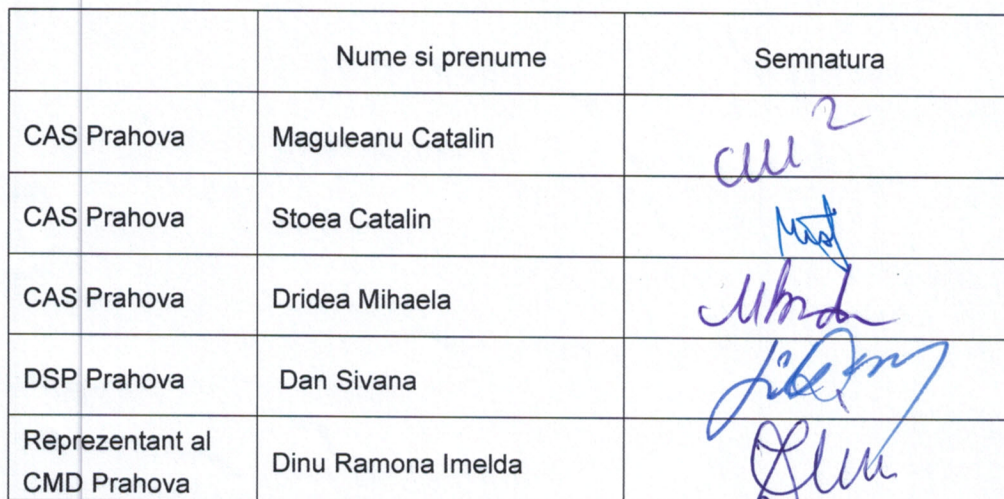 Nume si prenume Semnatura
CAS Prahova Maguleanu Catalin
CAS Prahova Stoea Catalin
CAS Prahova Dridea Mihaela
DSP Prahova Dan Sivana
Reprezentant al
CMD Prahova Dinu Ramona Imelda